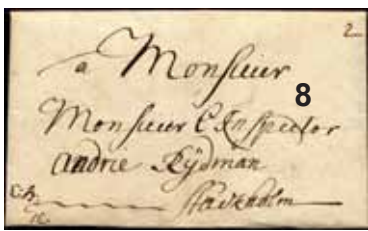 2
a Monsieur
8
Monsieur L'Inspector
Andrie Rÿdman
Stockholm